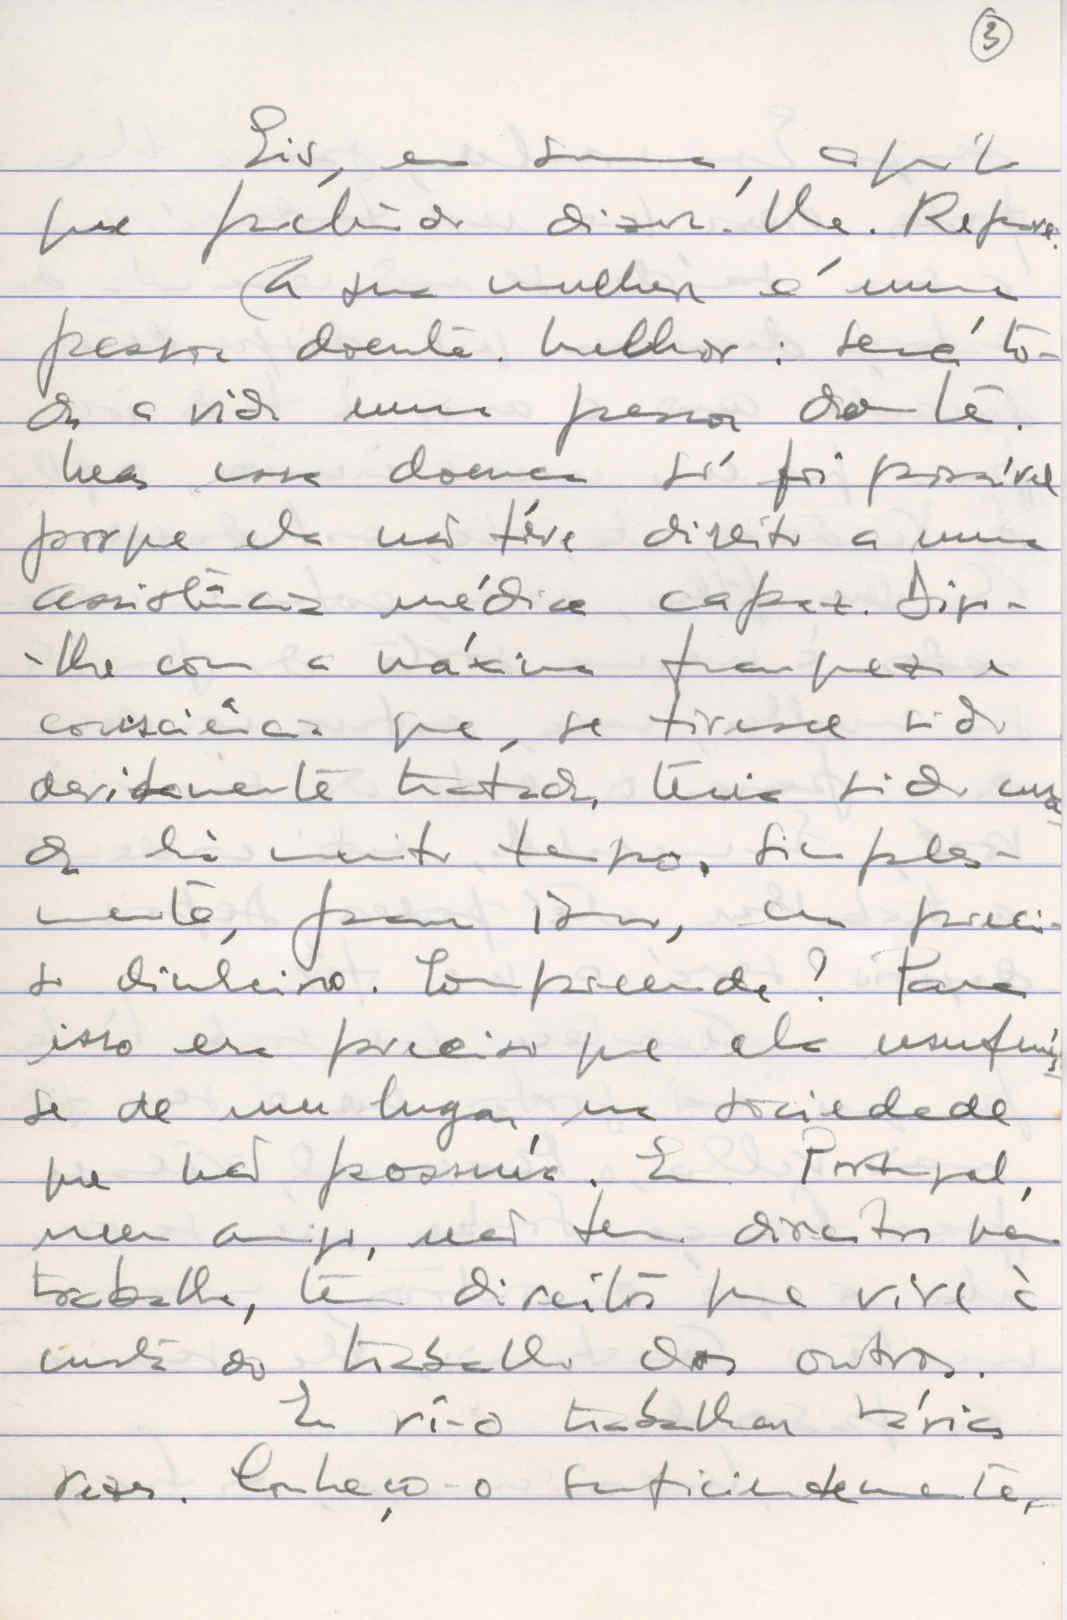 3
Eis, em suma, aquilo
que pretendo dizer-lhe. Repare:
A sua mulher é uma
pessoa doente. Melhor: será to-
da a vida uma pessoa doente.
Mas essa doença só foi possível
porque ela não teve direito a uma
assistência médica capaz. Digo-
-lhe com a máxima franqueza e
consciência que, se tivesse sido
devidamente tratada, teria sido cura-
da há muito tempo. Simples-
mente, para isso, era preci-
so dinheiro. Compreende? Para
isso era preciso que ela usufruís-
se de um lugar na sociedade
que não possuía. Em Portugal,
meu amigo, não tem direitos quem
trabalha, tem direitos que vive à
custa do trabalho dos outros.
Eu vi-o trabalhar várias
vezes. Conheço-o suficientemente,